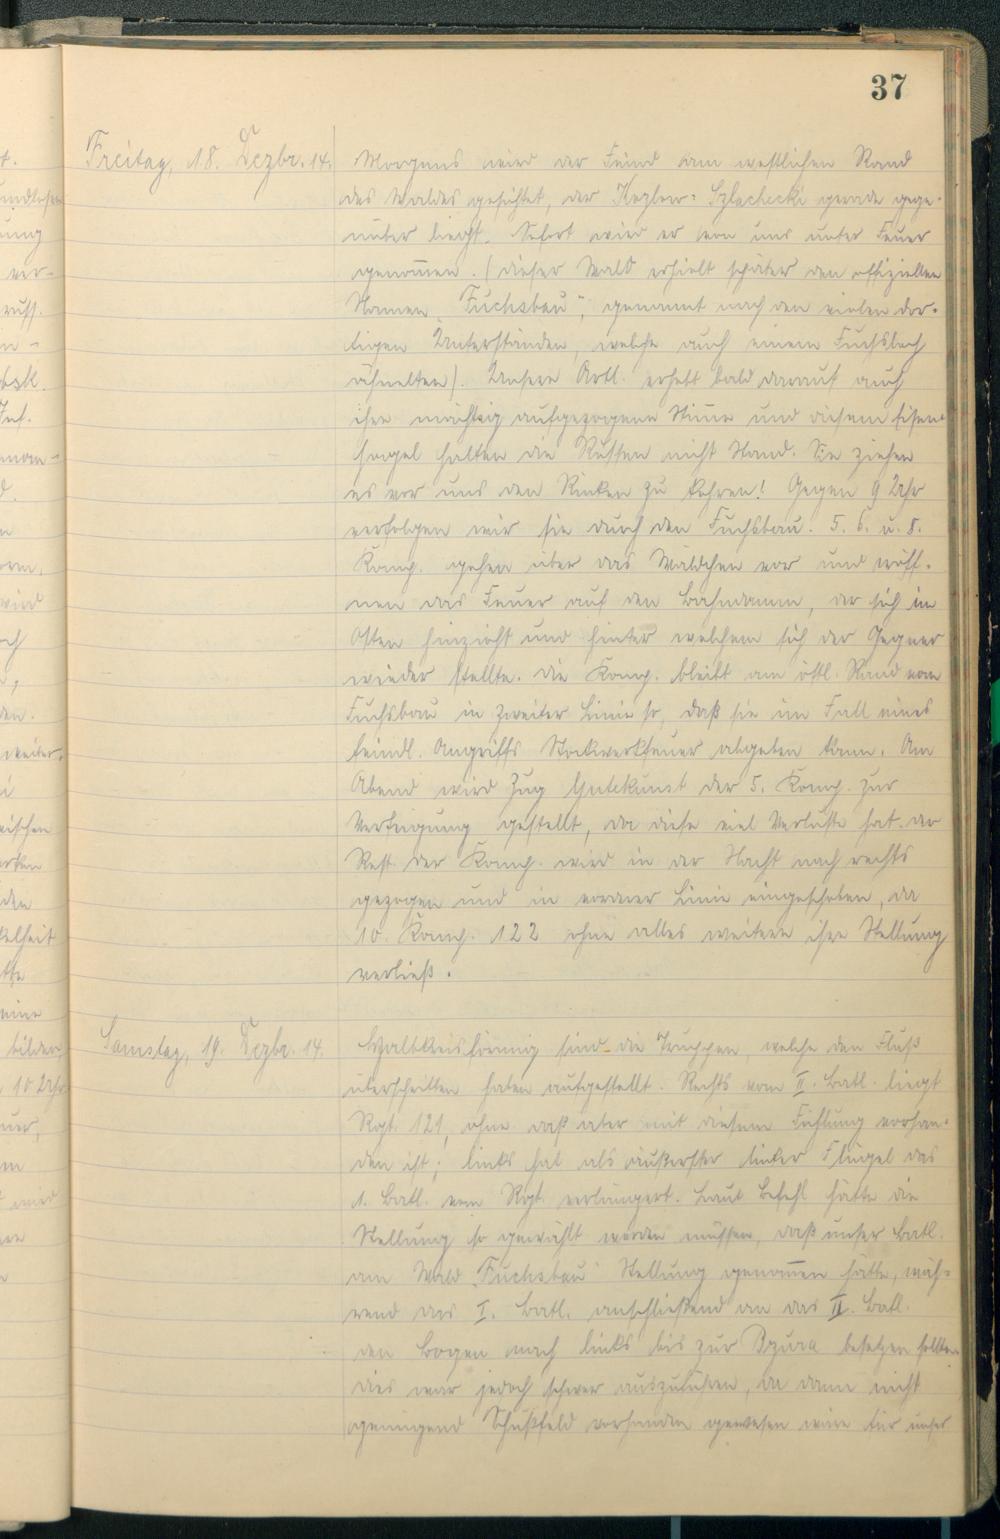 37
Freitag, 18. Dezbr. 14.
Morgens wird der Feind am westlichen Rand
des Waldes gesichtet, der Kozlow-Szlachecki gerade gege-
nüber liegt. Sofort wird er von uns unter Feuer
genom̅en. (Dieser Wald erhielt später den offiziellen
Namen „Fuchsbau“, genannt nach den vielen dor-
tigen Unterständen, welche auch einem Fuchsloch
ähnelten). Unsere Artl. erhebt bald darauf auch
ihre mächtig aufgezogene Stim̅e und diesem Eisen-
hagel halten die Russen nicht Stand. Sie ziehen
es vor uns den Rücken zu kehren! Gegen 9 Uhr
verfolgen wir sie durch den Fuchsbau. 5. 6. u. 8.
Komp. gehen über das Wäldchen vor und eröff-
nen das Feuer auf den Bahndamm, der sich im
Osten hinzieht und hinter welchem sich der Gegner
wieder stellte. Die Komp. bleibt am östl. Rand vom
Fuchsbau in zweiter Linie so, daß sie im Fall eines
feindl. Angriffs Stockwerkfeuer abgeben kann. Am
Abend wird Zug Gutekunst der 5. Komp. zur
Verfügung gestellt, da diese viel Verluste hat. Der
Rest der Komp. wird in der Nacht nach rechts
gezogen und in vorderer Linie eingeschoben, da
10. Komp. 122 ohne alles weitere ihre Stellung
verließ.
Samstag, 19. Dezbr. 14.
Halbkreisförmig sind die Truppen, welche den Fluß
überschritten haben aufgestellt. Rechts vom II. Batl. liegt
Rgt. 121, ohne daß aber mit diesem Fühlung vorhan-
den ist; links hat als äußerster linker Flügel das
1. Batl. vom Rgt. verlängert. Laut Befehl hätte die
Stellung so gewählt werden müssen, daß unser Batl.
am Wald „Fuchsbau“ Stellung genom̅en hätte, wäh-
rend das I. Batl. anschließend an das II. Batl.
den Bogen nach links bis zur Bzura besetzen sollte.
Dies war jedoch schwer auszuführen, da dann nicht
genügend Schußfeld vorhanden gewesen wäre für unser